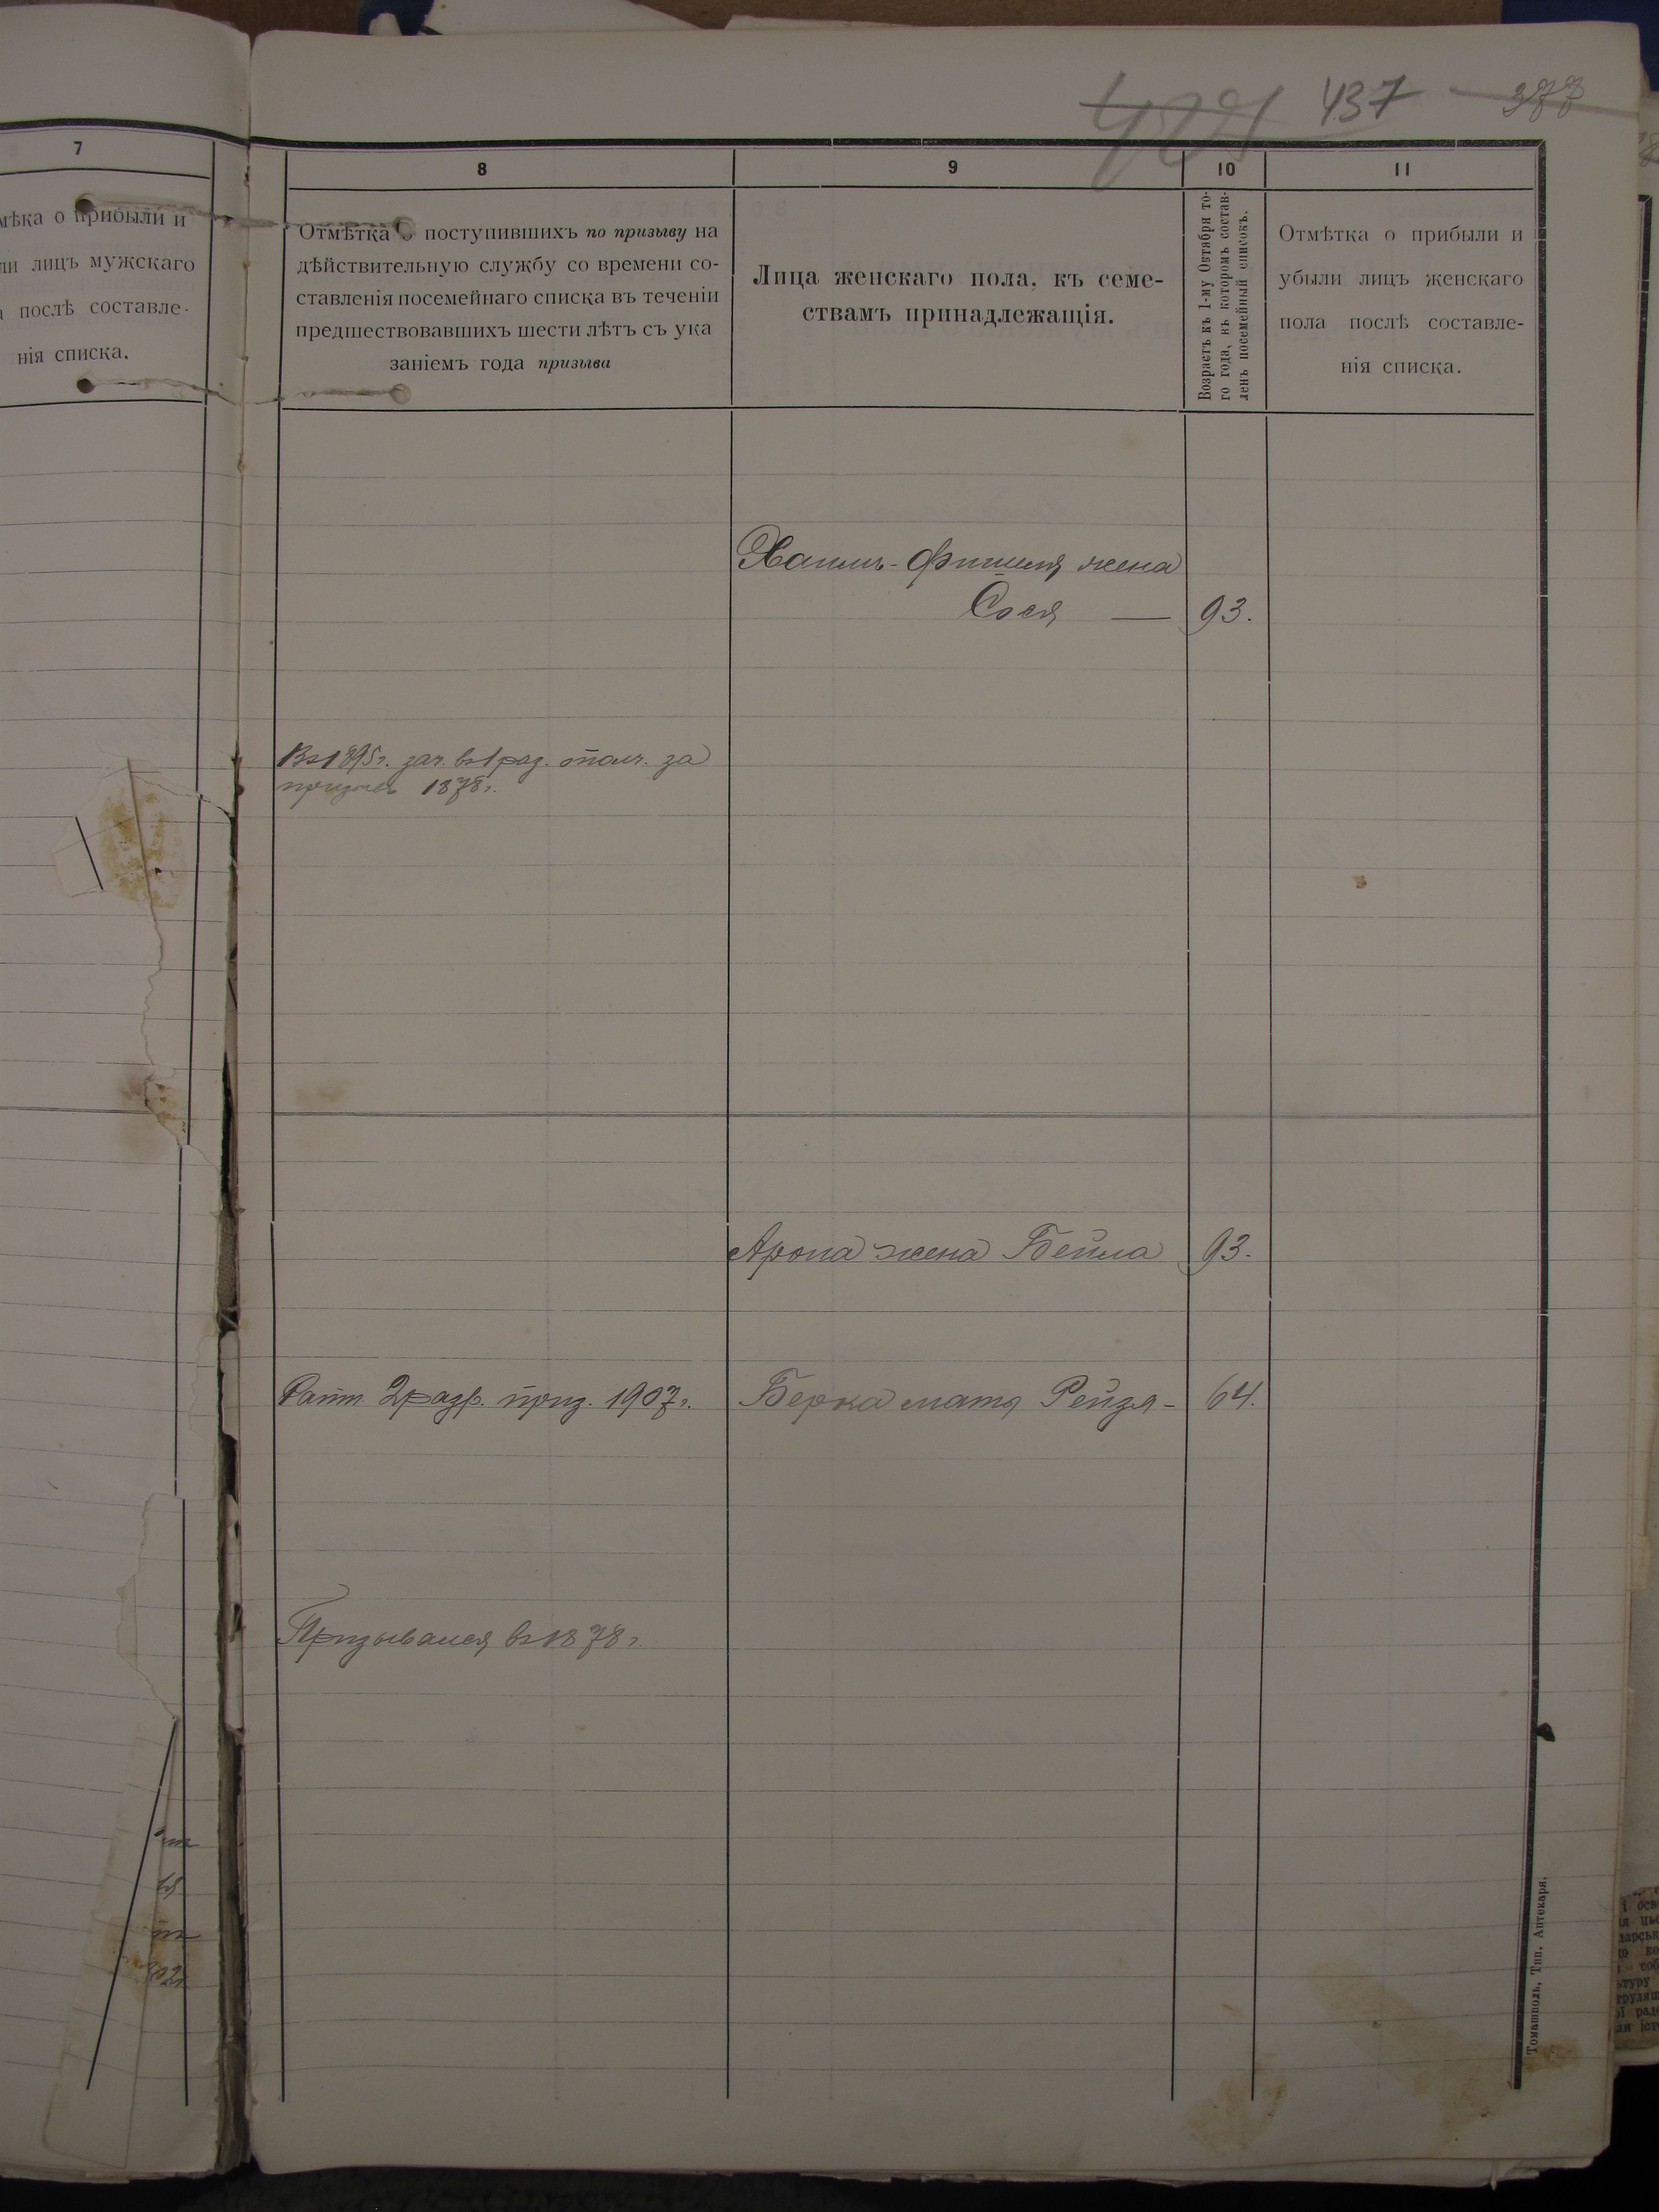 437
377
7
мѣка о прибыли и
ли лицъ мужскаго
послѣ составле-
нія списка.
8
Отмѣтка о поступившихъ по призыву на
дѣйствительную службу со времени со-
ставленія посемейнаго списка въ теченіи
предшествовавшихъ шести лѣтъ съ ука
заніемъ года призыва
9
Лица женскаго пола, къ семе-
ствамъ принадлежащія.
10
Возрастъ къ 1-му Октября то-
го года, въ которомъ состав-
ленъ посемейный списокъ.
11
Отмѣтка о прибыли и
убыли лицъ женскаго
пола послѣ составле-
нія списка.
Хаимъ-Фишеля жена
Сося — 93.
Въ 1895г. зач. въ 1 раз. за
призывъ 1878г.
Арона жена Бейла 93.
Ратн. 2 разр. приз. 1907г. Берка мать Рейзя - 64.
Призывался въ 1878г.
Томашполь, Тип. Аптекаря.